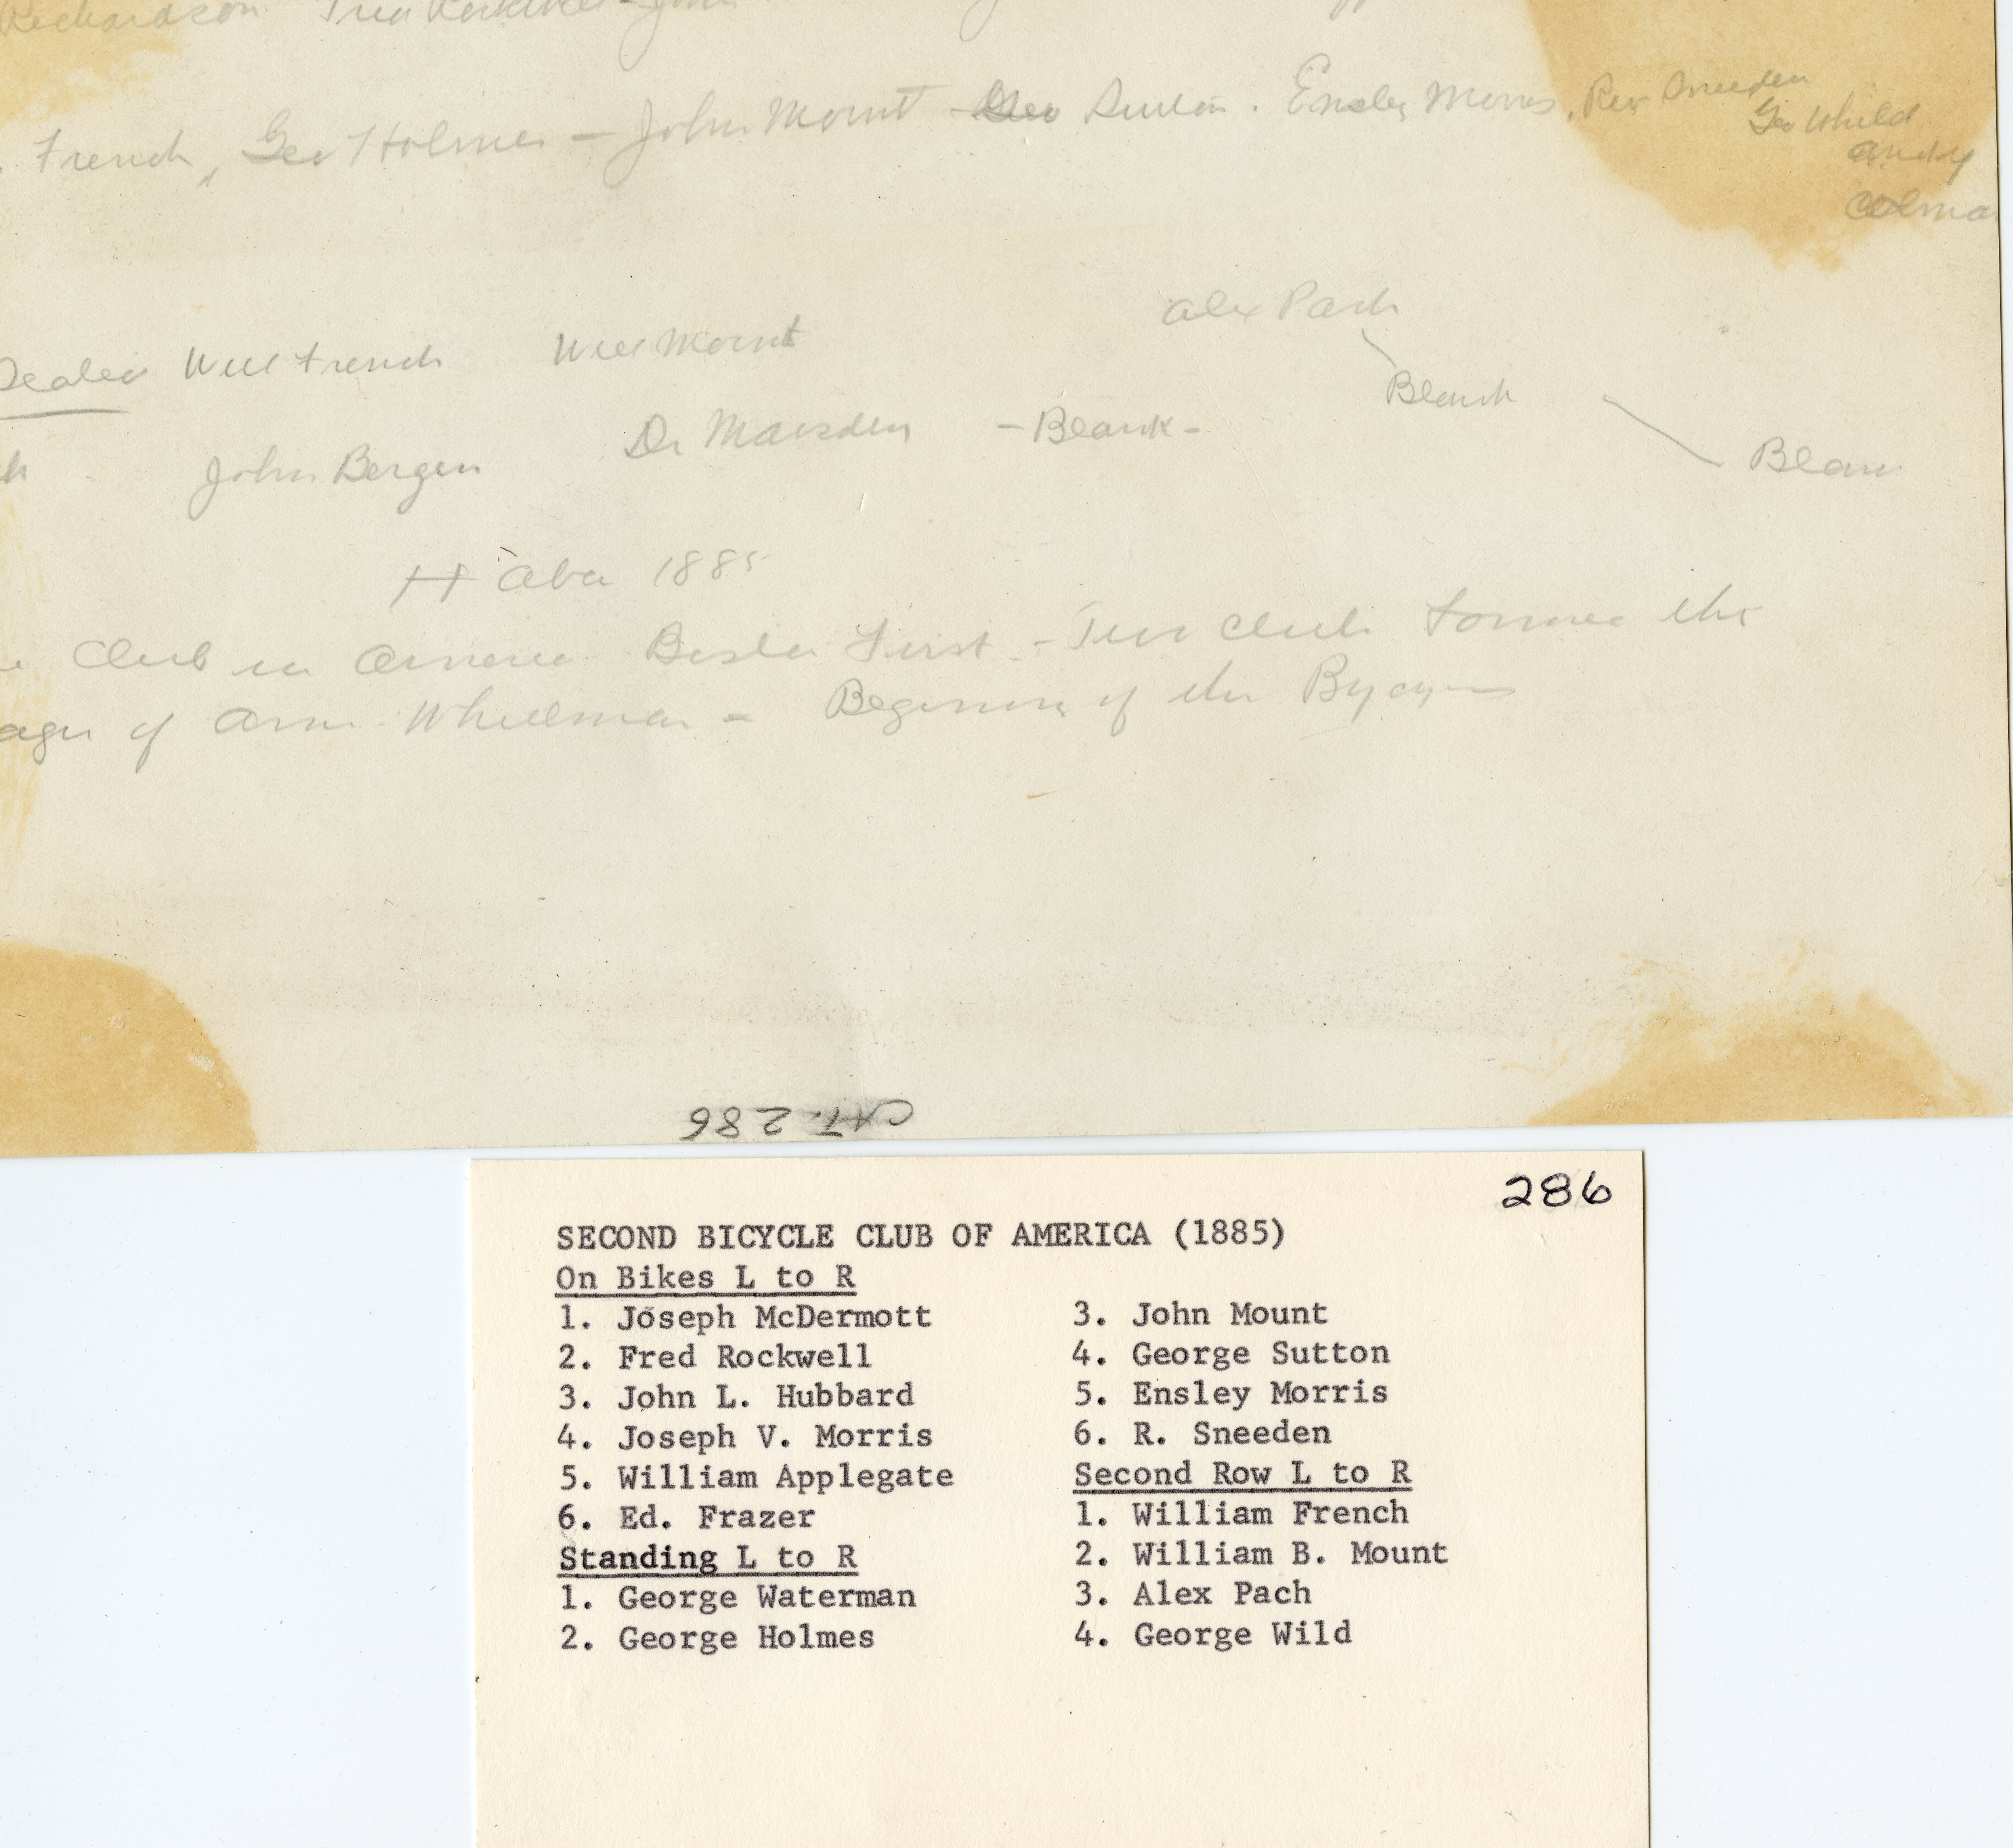 Richardson Fred
French, Geo Holmes - John Mount - Geo Sutton. Ensley Morris, Rev Sneeden
Geo Whild
Andy
Alex Pach
Will French Will Mount
Blank
Dr Marsden - Blank -
John Bergen
H Aba 1885
Club in First - club the
of Am Wheelman - of the
CAT. 286
286
SECOND BICYCLE CLUB OF AMERICA (1885)
On Bikes L to R
1. Joseph McDermott
2. Fred Rockwell
3. John L. Hubbard
4. Joseph V. Morris
5. William Applegate
6. Ed. Frazer
Standing L to R
1. George Waterman
2. George Holmes
3. John Mount
4. George Sutton
5. Ensley Morris
6. R. Sneeden
Second Row L to R
1. William French
2. William B. Mount
3. Alex Pach
4. George Wild